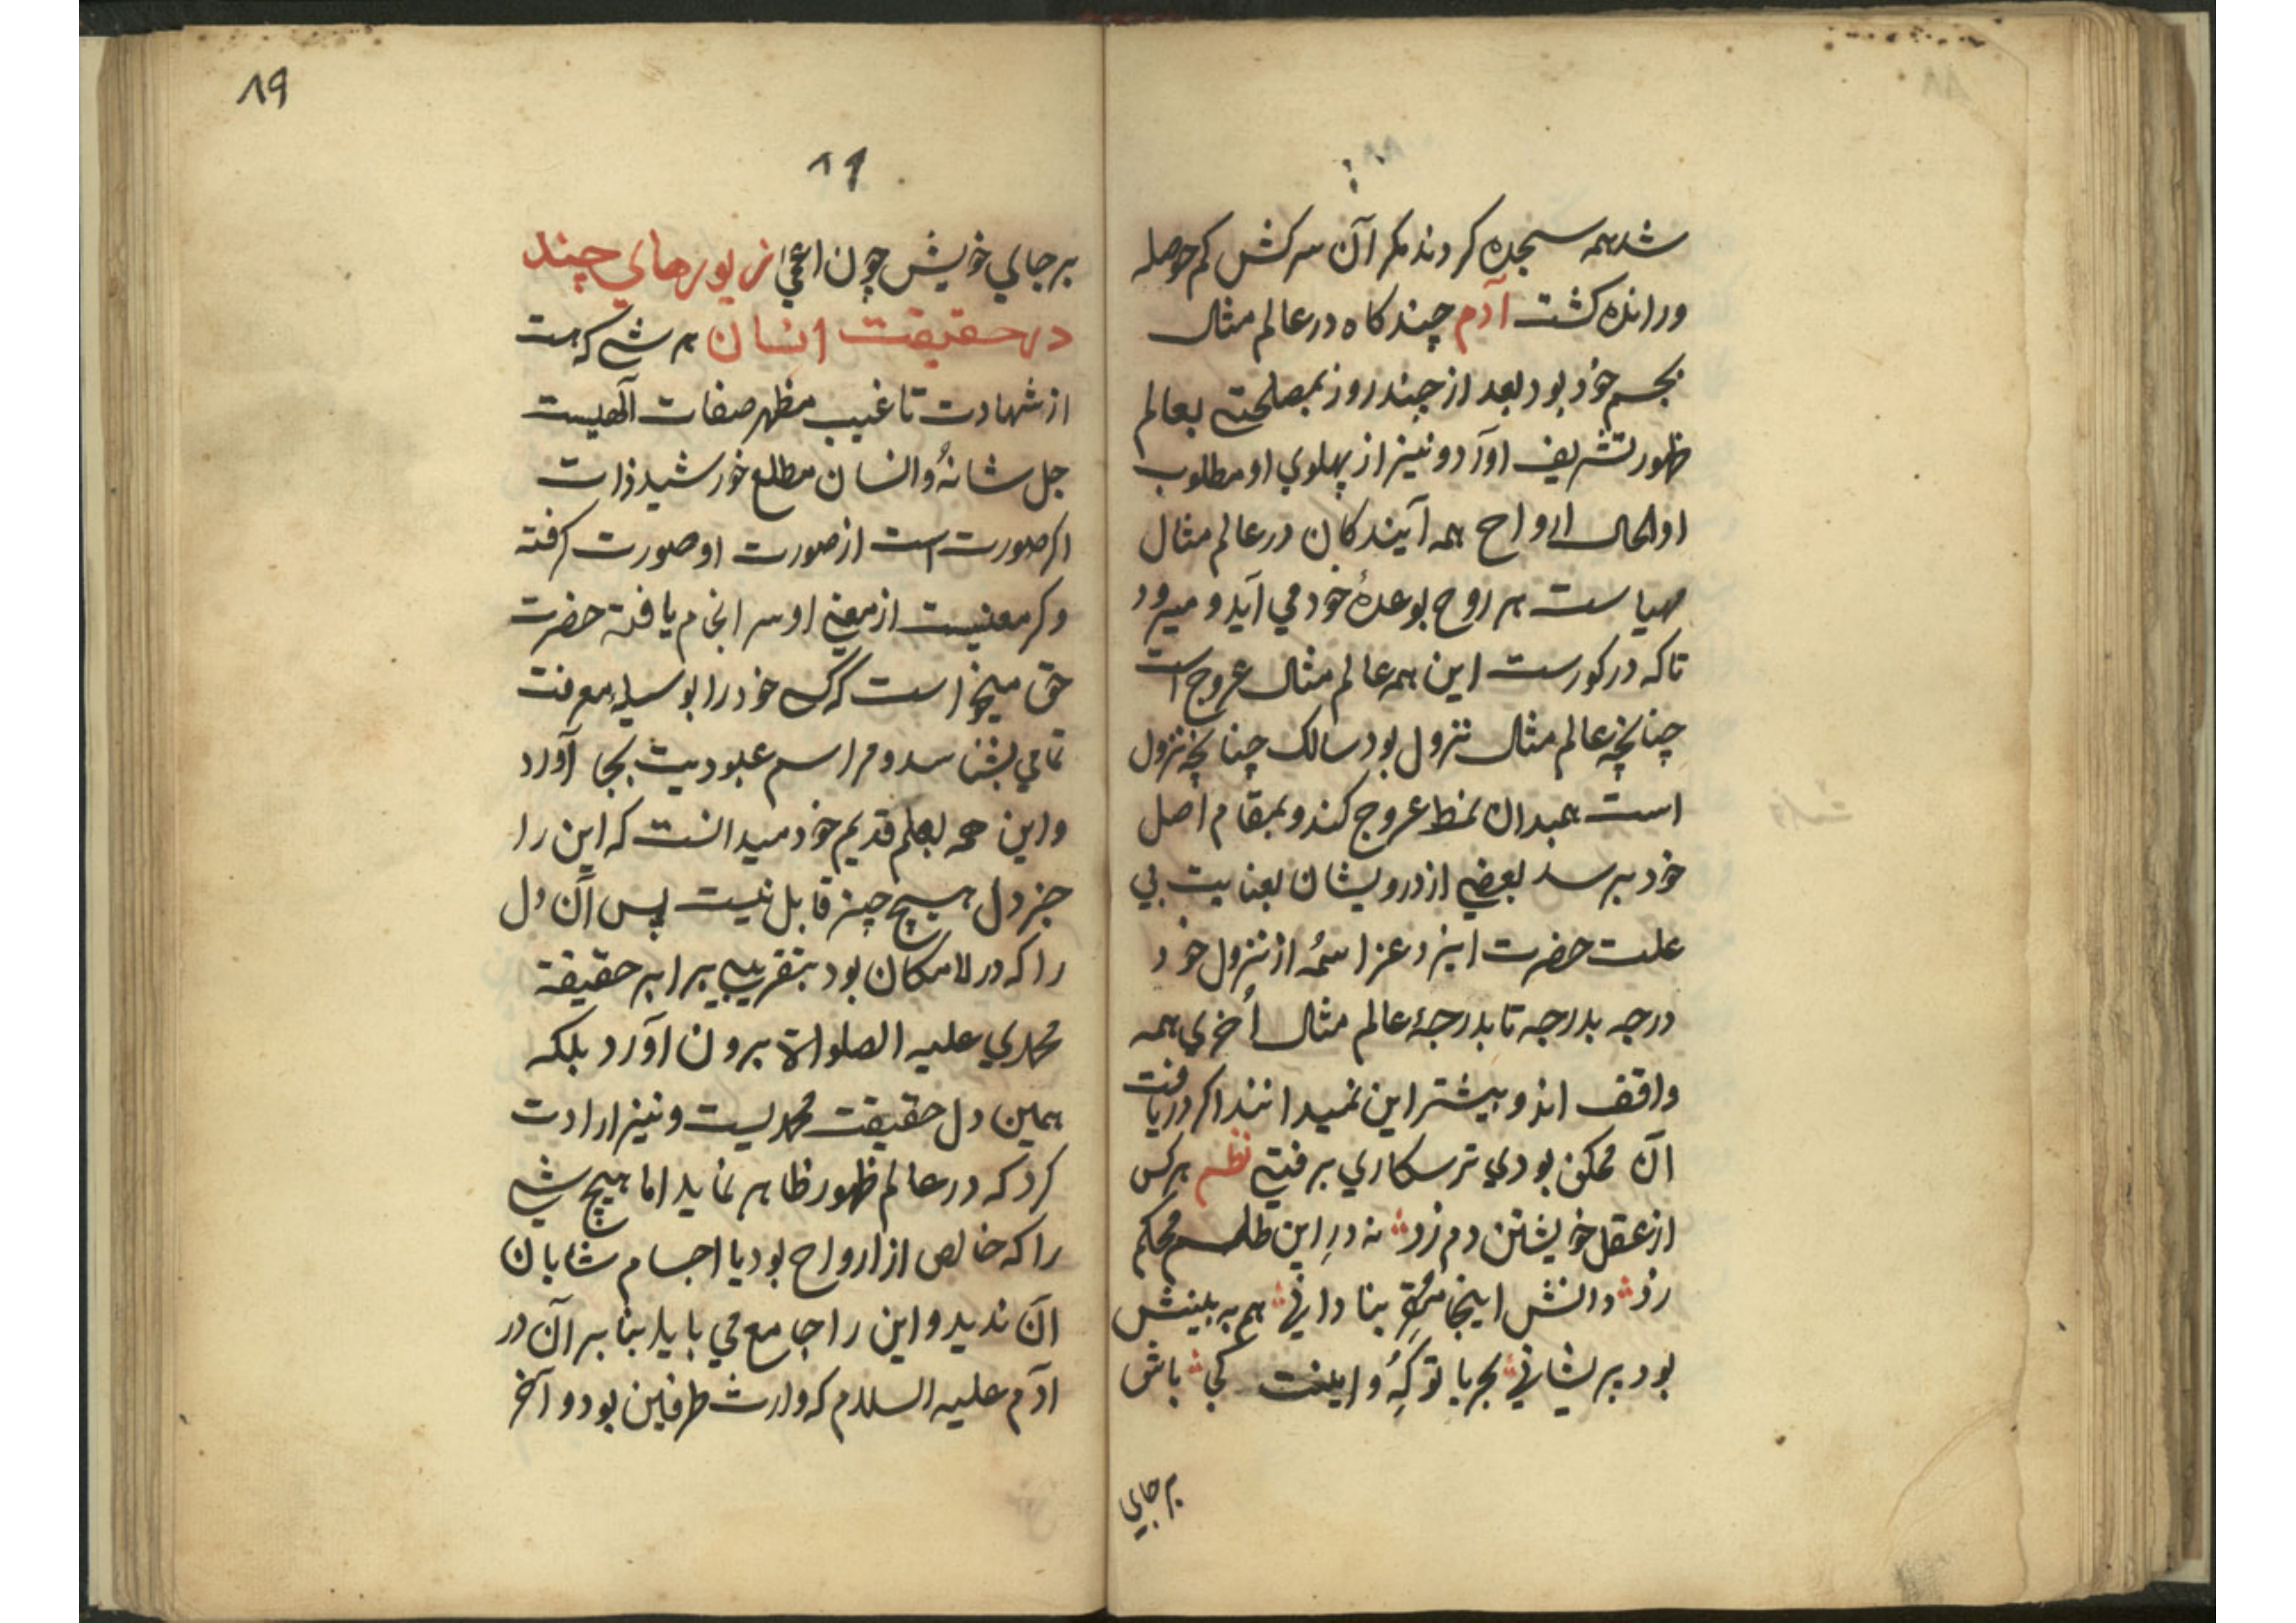 شد همه سجده کردند مکر آن سرکش کم حوصله
ورانده کشت آدم چند کاه در عالم مثال
بجسم خود بود بعد از چند روز بمصلحتی بعالم
ظهور تشریف اورد و نیز از پهلوی او مطلوب
اوالحال ارواح همه آیندکان در عالم مثال
مهیاست هر روح بوعدهٔ خود می آید و میرود
تا که درکورست این همه عالم مثال عروج است
چنانچه عالم مثال نزول بود سالک چنانچه نزول
است همبدان نمط عروج کند و بمقام اصل
خود برسد بعضی از درویشان بعنایت بی
علت حضرت ایزد عز اسمُه از نزول خود
درجه بدرجه تا بدرجهٔ عالم مثال اُخری همه
واقف اند و بیشتر این نمیدانند اکر دریافت
آن ممکن بودی ترسکاری برفتی نظم هرکس
از عقل خویشتن دم زد نه درِ این طلسم محکم
زد دانش اینجا بنادانی هم به بینش
بود پریشانی بحر با تو کِهُ و اینت کی باش
برجای
۸۹
۸۹
برجای خویش چون اعمی زیورهای چند
در حقیقت انسان هر شی که هست
از شهادت تا غیب مظهر صفات آلهیست
جل شانهُ و انسان مطلع خورشید ذات
اکر صورت است از صورت او صورت کرفته
وکر معنیست از معنی او سرانجام یافته حضرت
حق میخواست که کسی خود را بوسیلهٔ معرفت
تمامی بشناسد و مراسم عبودیت بجا آورد
و این همه بعلم قدیم خود میدانست که این را
جز دل هیچ چیز قابل نیست پس آن دل
را که در لامکان بود بتقریبی برابر حقیقة
محمدی علیه الصلواة برون آورد بلکه
همین دل حقیقت محمدیست و نیز ارادت
کرد که در عالم ظهور ظاهر نماید اما هیچ شی
را که خالص از ارواح بود یا اجسام شایان
آن ندید و این را جامع می باید بنا بر آن در
آدم علیه السلام که وارث طرفین بود و آخر